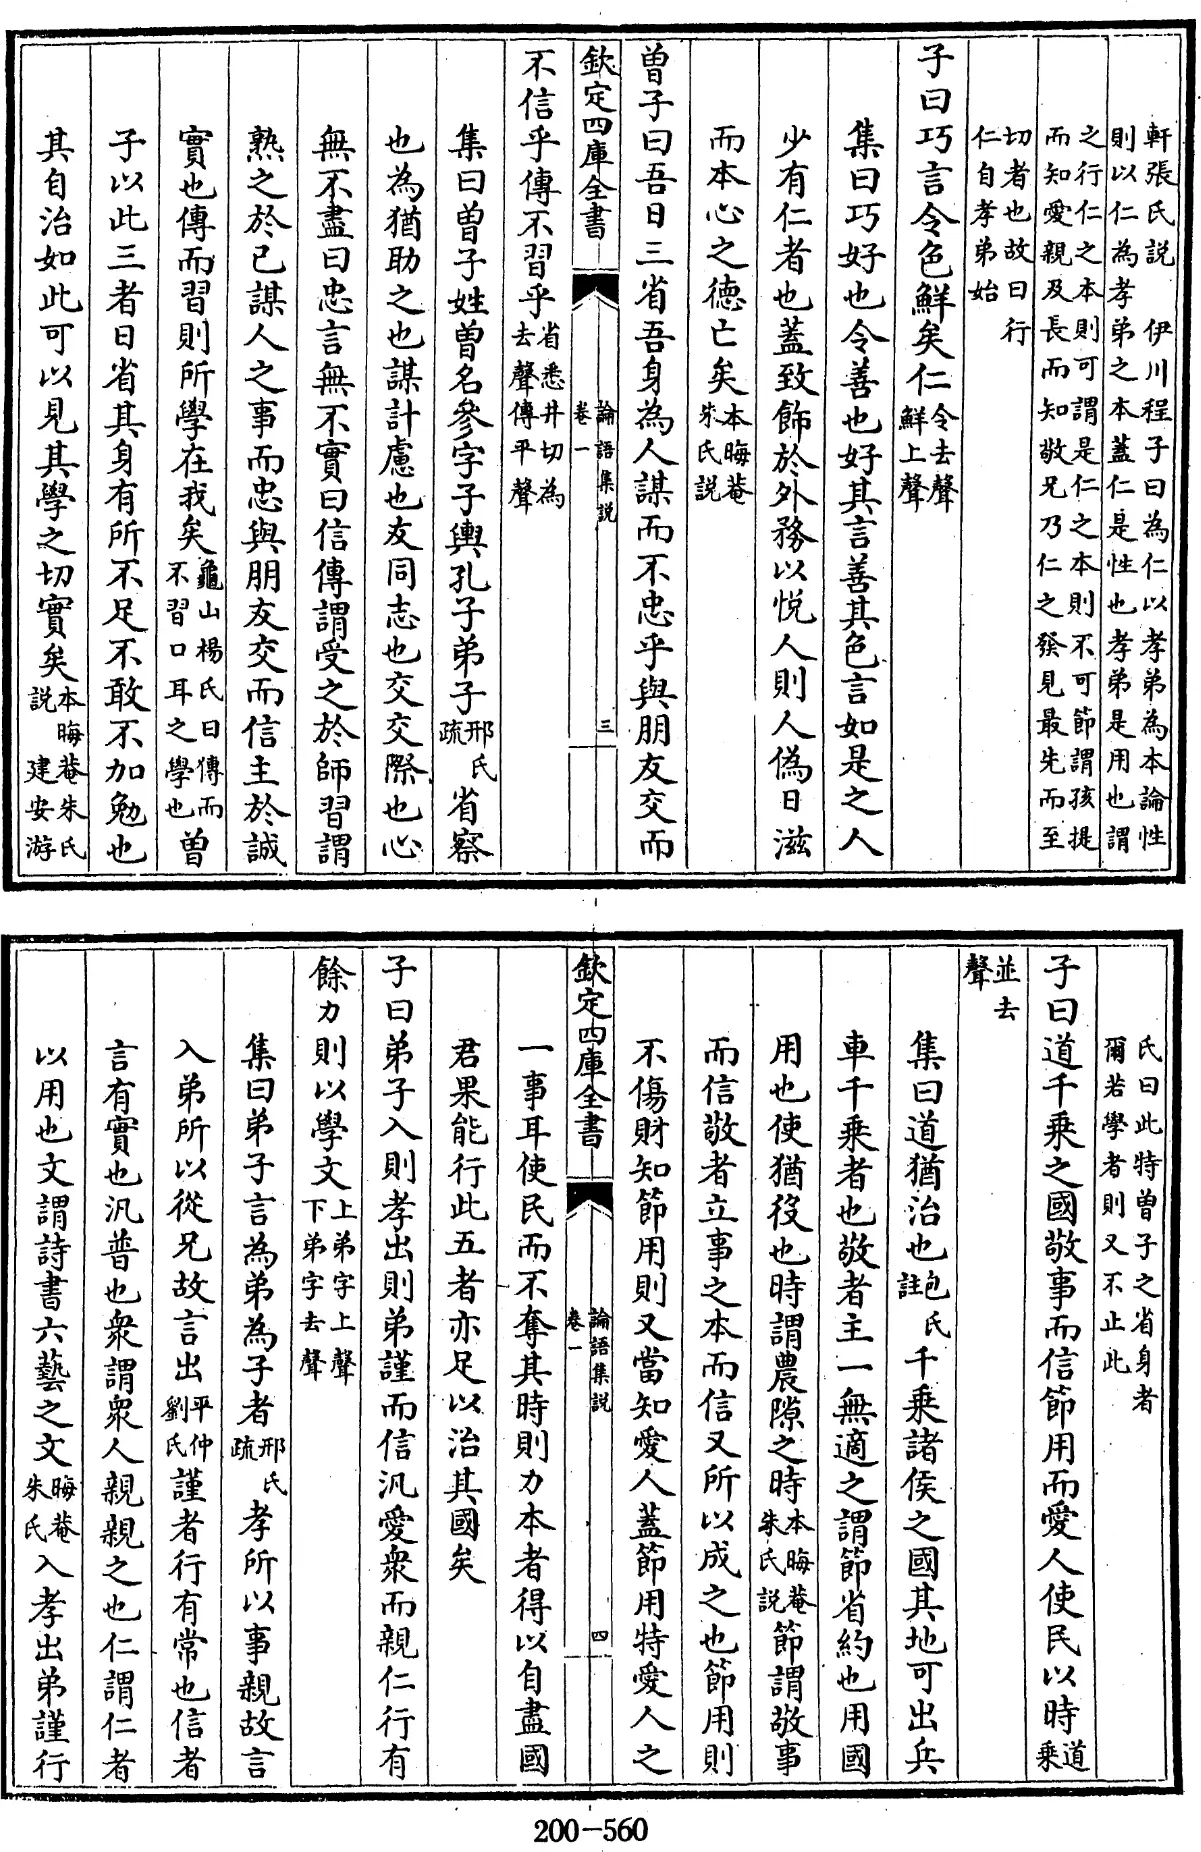 軒張氏説 伊川程子曰為仁以孝弟為本論性
則以仁為孝弟之本蓋仁是性也孝弟是用也謂
之行仁之本則可謂是仁之本則不可節謂孩提
而知愛親及長而知敬兄乃仁之發見最先而至
切者也故曰行
仁自孝弟始
子曰巧言令色鮮矣仁令去聲鮮上聲
集曰巧好也令善也好其言善其色言如是之人
少有仁者也蓋致飾於外務以悦人則人偽日滋
而本心之德亡矣本晦菴朱氏説
曾子曰吾日三省吾身為人謀而不忠乎與朋友交而
欽定四庫全書 論語集説 卷一 三
不信乎傳不習乎省悉井切為去聲傳平聲
集曰曾子姓曾名參字子輿孔子弟子邢氏疏省察
也為猶助之也謀計慮也友同志也交交際也心
無不盡曰忠言無不實曰信傳謂受之於師習謂
熟之於已謀人之事而忠與朋友交而信主於誠
實也傳而習則所學在我矣龜山楊氏曰傳而不習口耳之學也曾
子以此三者日省其身有所不足不敢不加勉也
其自治如此可以見其學之切實矣本晦菴朱氏説 建安游
氏曰此特曾子之省身者
爾若學者則又不止此
子曰道千乘之國敬事而信節用而愛人使民以時道乘
並去聲
集曰道猶治也包氏註千乘諸侯之國其地可出兵
車千乘者也敬者主一無適之謂節省約也用國
用也使猶役也時謂農隙之時本晦菴朱氏説節謂敬事
而信敬者立事之本而信又所以成之也節用則
不傷財知節用則又當知愛人蓋節用特愛人之
欽定四庫全書 論語集説 卷一 四
一事耳使民而不奪其時則力本者得以自盡國
君果能行此五者亦足以治其國矣
子曰弟子入則孝出則弟謹而信汎愛衆而親仁行有
餘力則以學文上弟字上聲下弟字去聲
集曰弟子言為弟為子者邢氏疏孝所以事親故言
入弟所以從兄故言出平仲劉氏謹者行有常也信者
言有實也汎普也衆謂衆人親親之也仁謂仁者
以用也文謂詩書六藝之文晦菴朱氏入孝出弟謹行
200-560